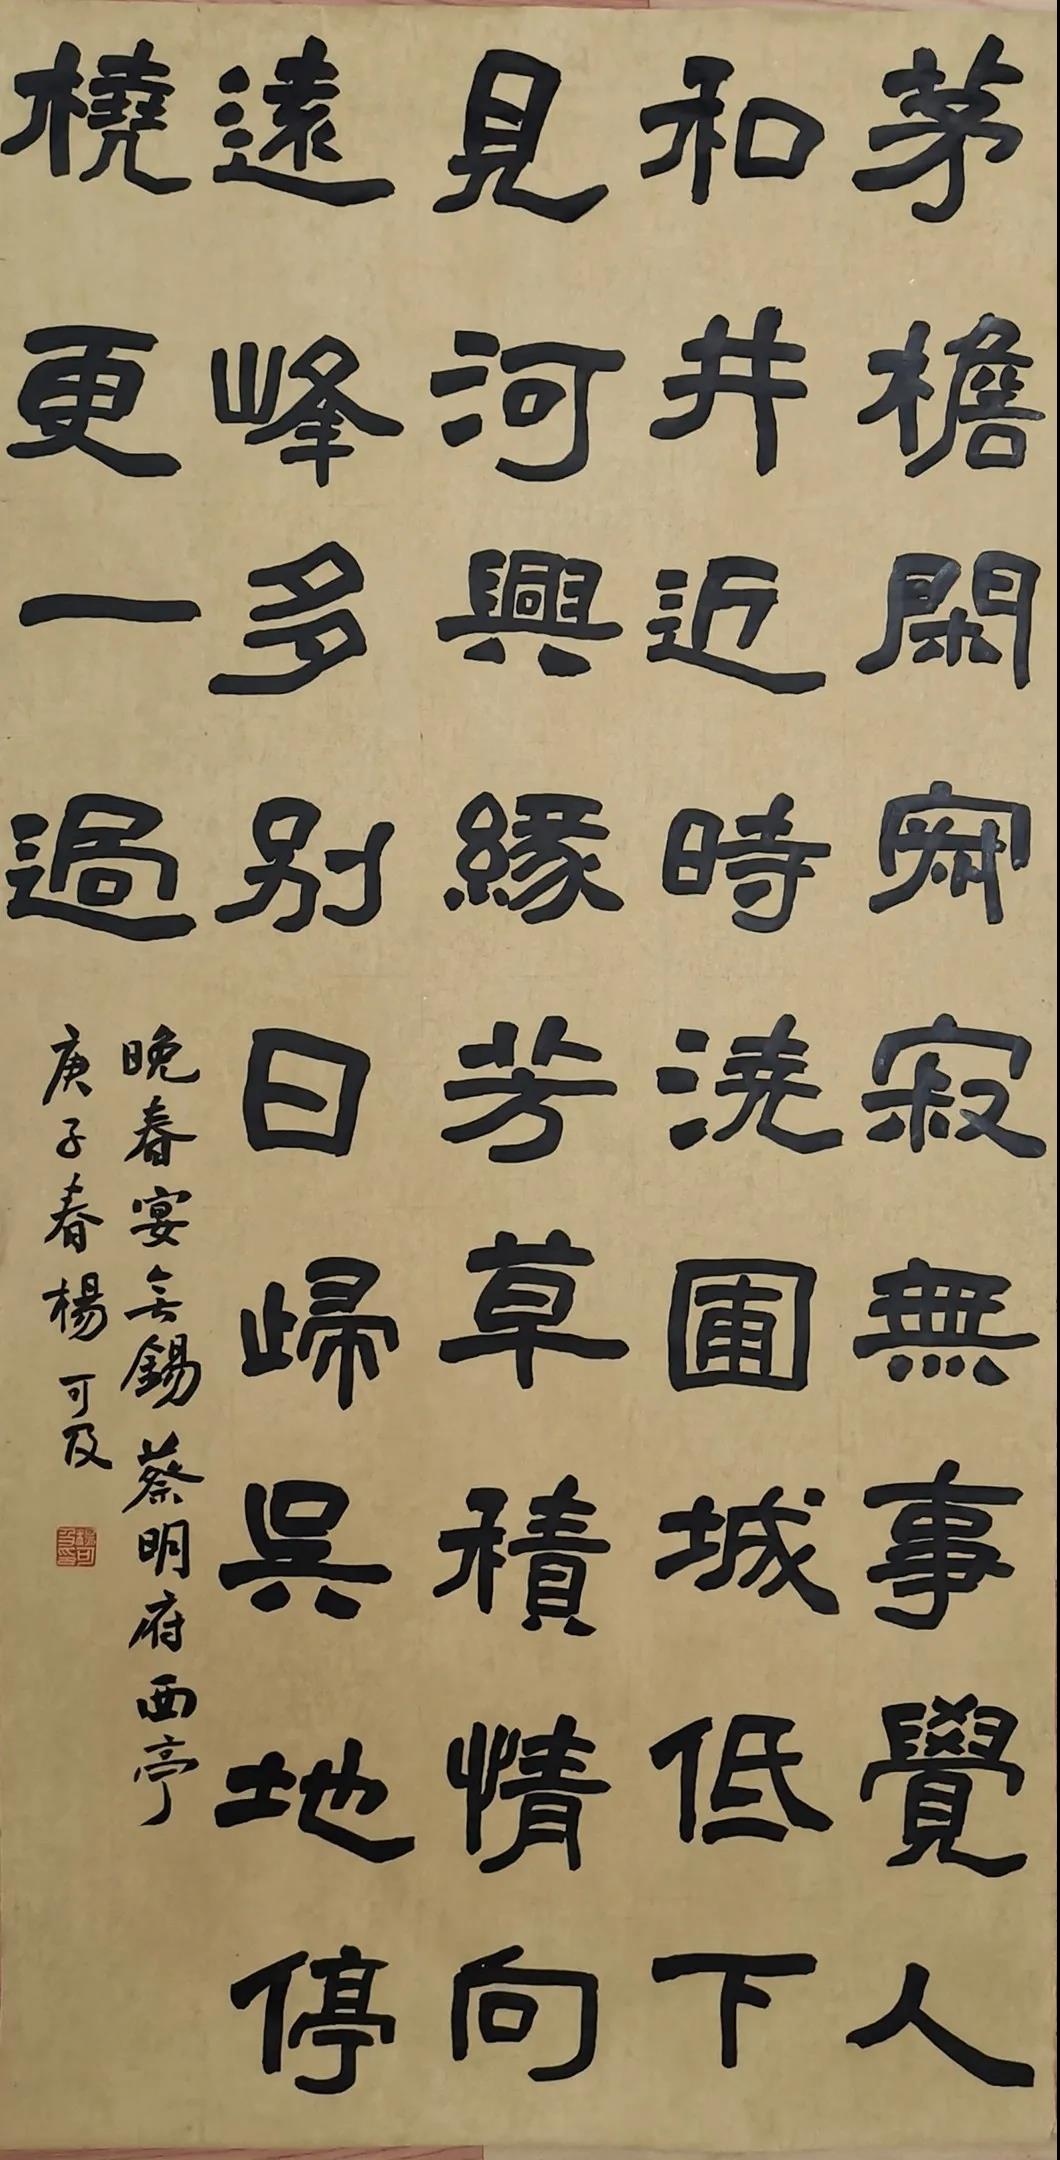 茅檐閑寂寂無事覺人
和井近時澆圃城低下
見河興緣芳草積情向
遠峰多別日歸吳地停
橈更一過
晚春宴无錫蔡明府西亭
庚子春楊可及